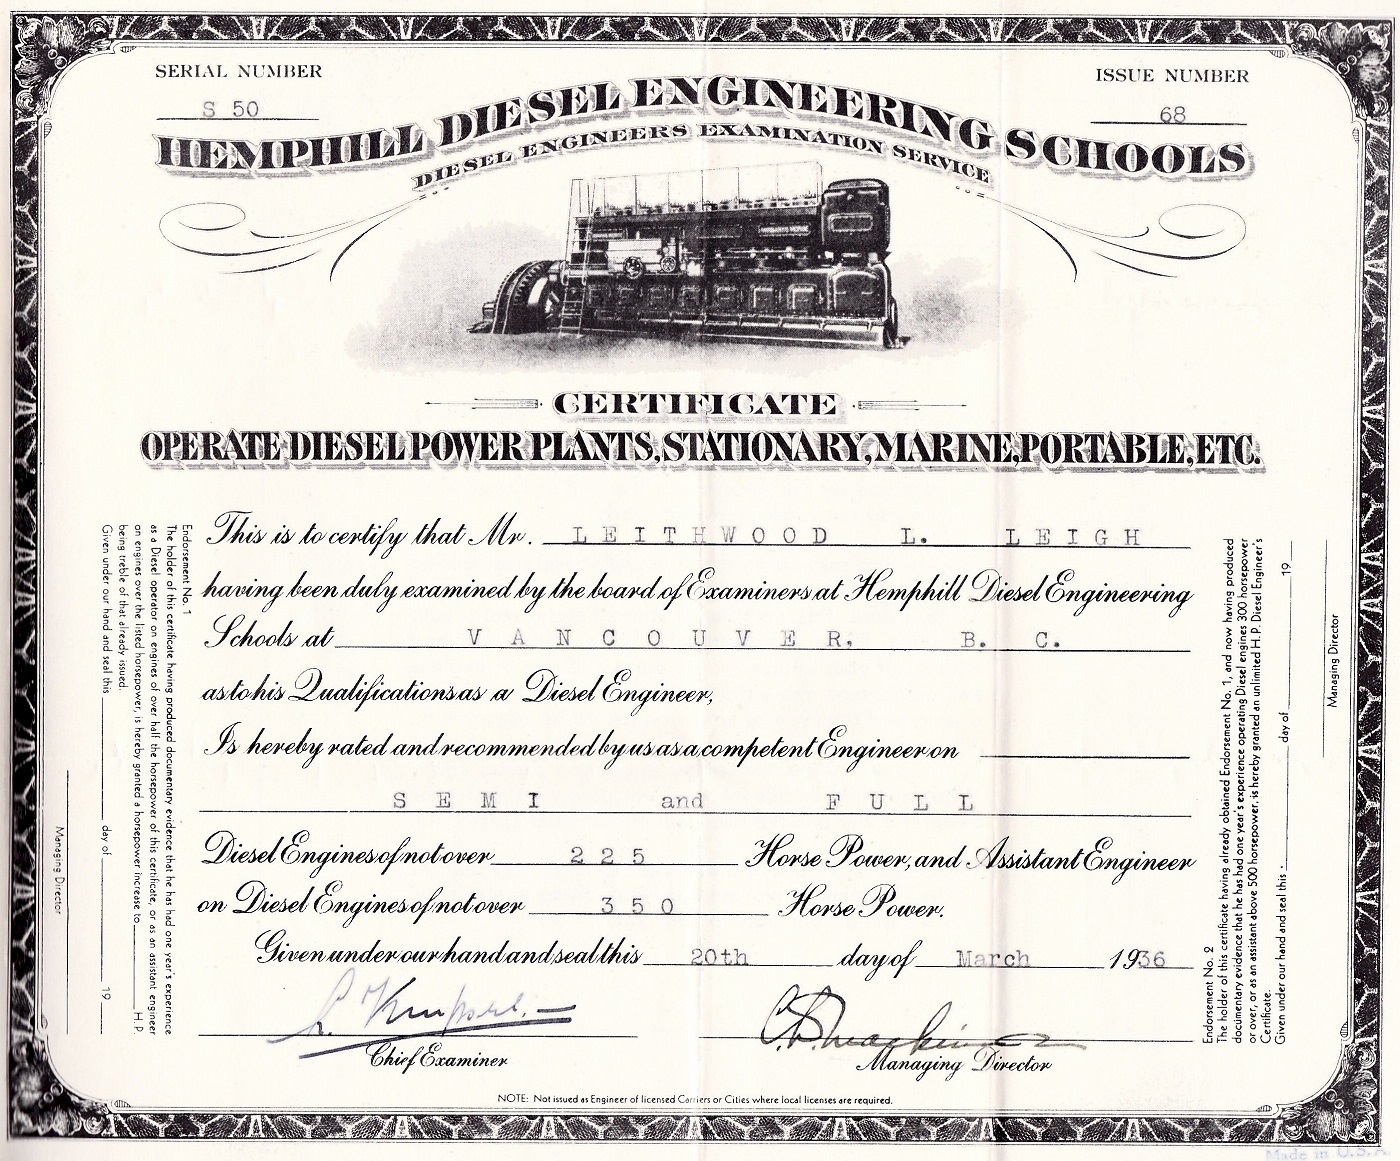 SERIAL NUMBER
S 50
ISSUE NUMBER
68
HEMPHILL DIESEL ENGINEERING SCHOOLS
DIESEL ENGINEERS EXAMINATION SERVICE
CERTIFICATE
OPERATE DIESEL POWER PLANTS, STATIONARY, MARINE, PORTABLE, ETC.
This is to certify that Mr. LEITHWOOD L. LEIGH
having been duly examined by the board of Examiners at Hemphill Diesel Engineering
Schools at VANCOUVER, B. C.
as to his Qualifications as a Diesel Engineer,
Is hereby rated and recommended by us as a competent Engineer on
SEMI and FULL
Diesel Engines of not over 225 Horse Power, and Assistant Engineer
on Diesel Engines of not over 350 Horse Power.
Given under our hand and seal this 20th day of March 1936
Chief Examiner
Managing Director
NOTE: Not issued as Engineer of licensed Carriers or Cities where local licenses are required.
Endorsement No. 1
The holder of this certificate having produced documentary evidence that he has had one year's experience
as a Diesel operator on engines of over half the horsepower of this certificate, or as an assistant engineer
on engines over the listed horsepower, is hereby granted a horsepower increase to H.P.
being treble of that already issued.
Given under our hand and seal this day of 19
Managing Director
Endorsement No. 2
The holder of this certificate having already obtained Endorsement No. 1, and now having produced
documentary evidence that he has had one year's experience operating Diesel engines 300 horsepower
or over, or as an assistant above 500 horsepower, is hereby granted an unlimited H.P. Diesel Engineer's
Certificate.
Given under our hand and seal this day of 19
Managing Director
Made in U.S.A.